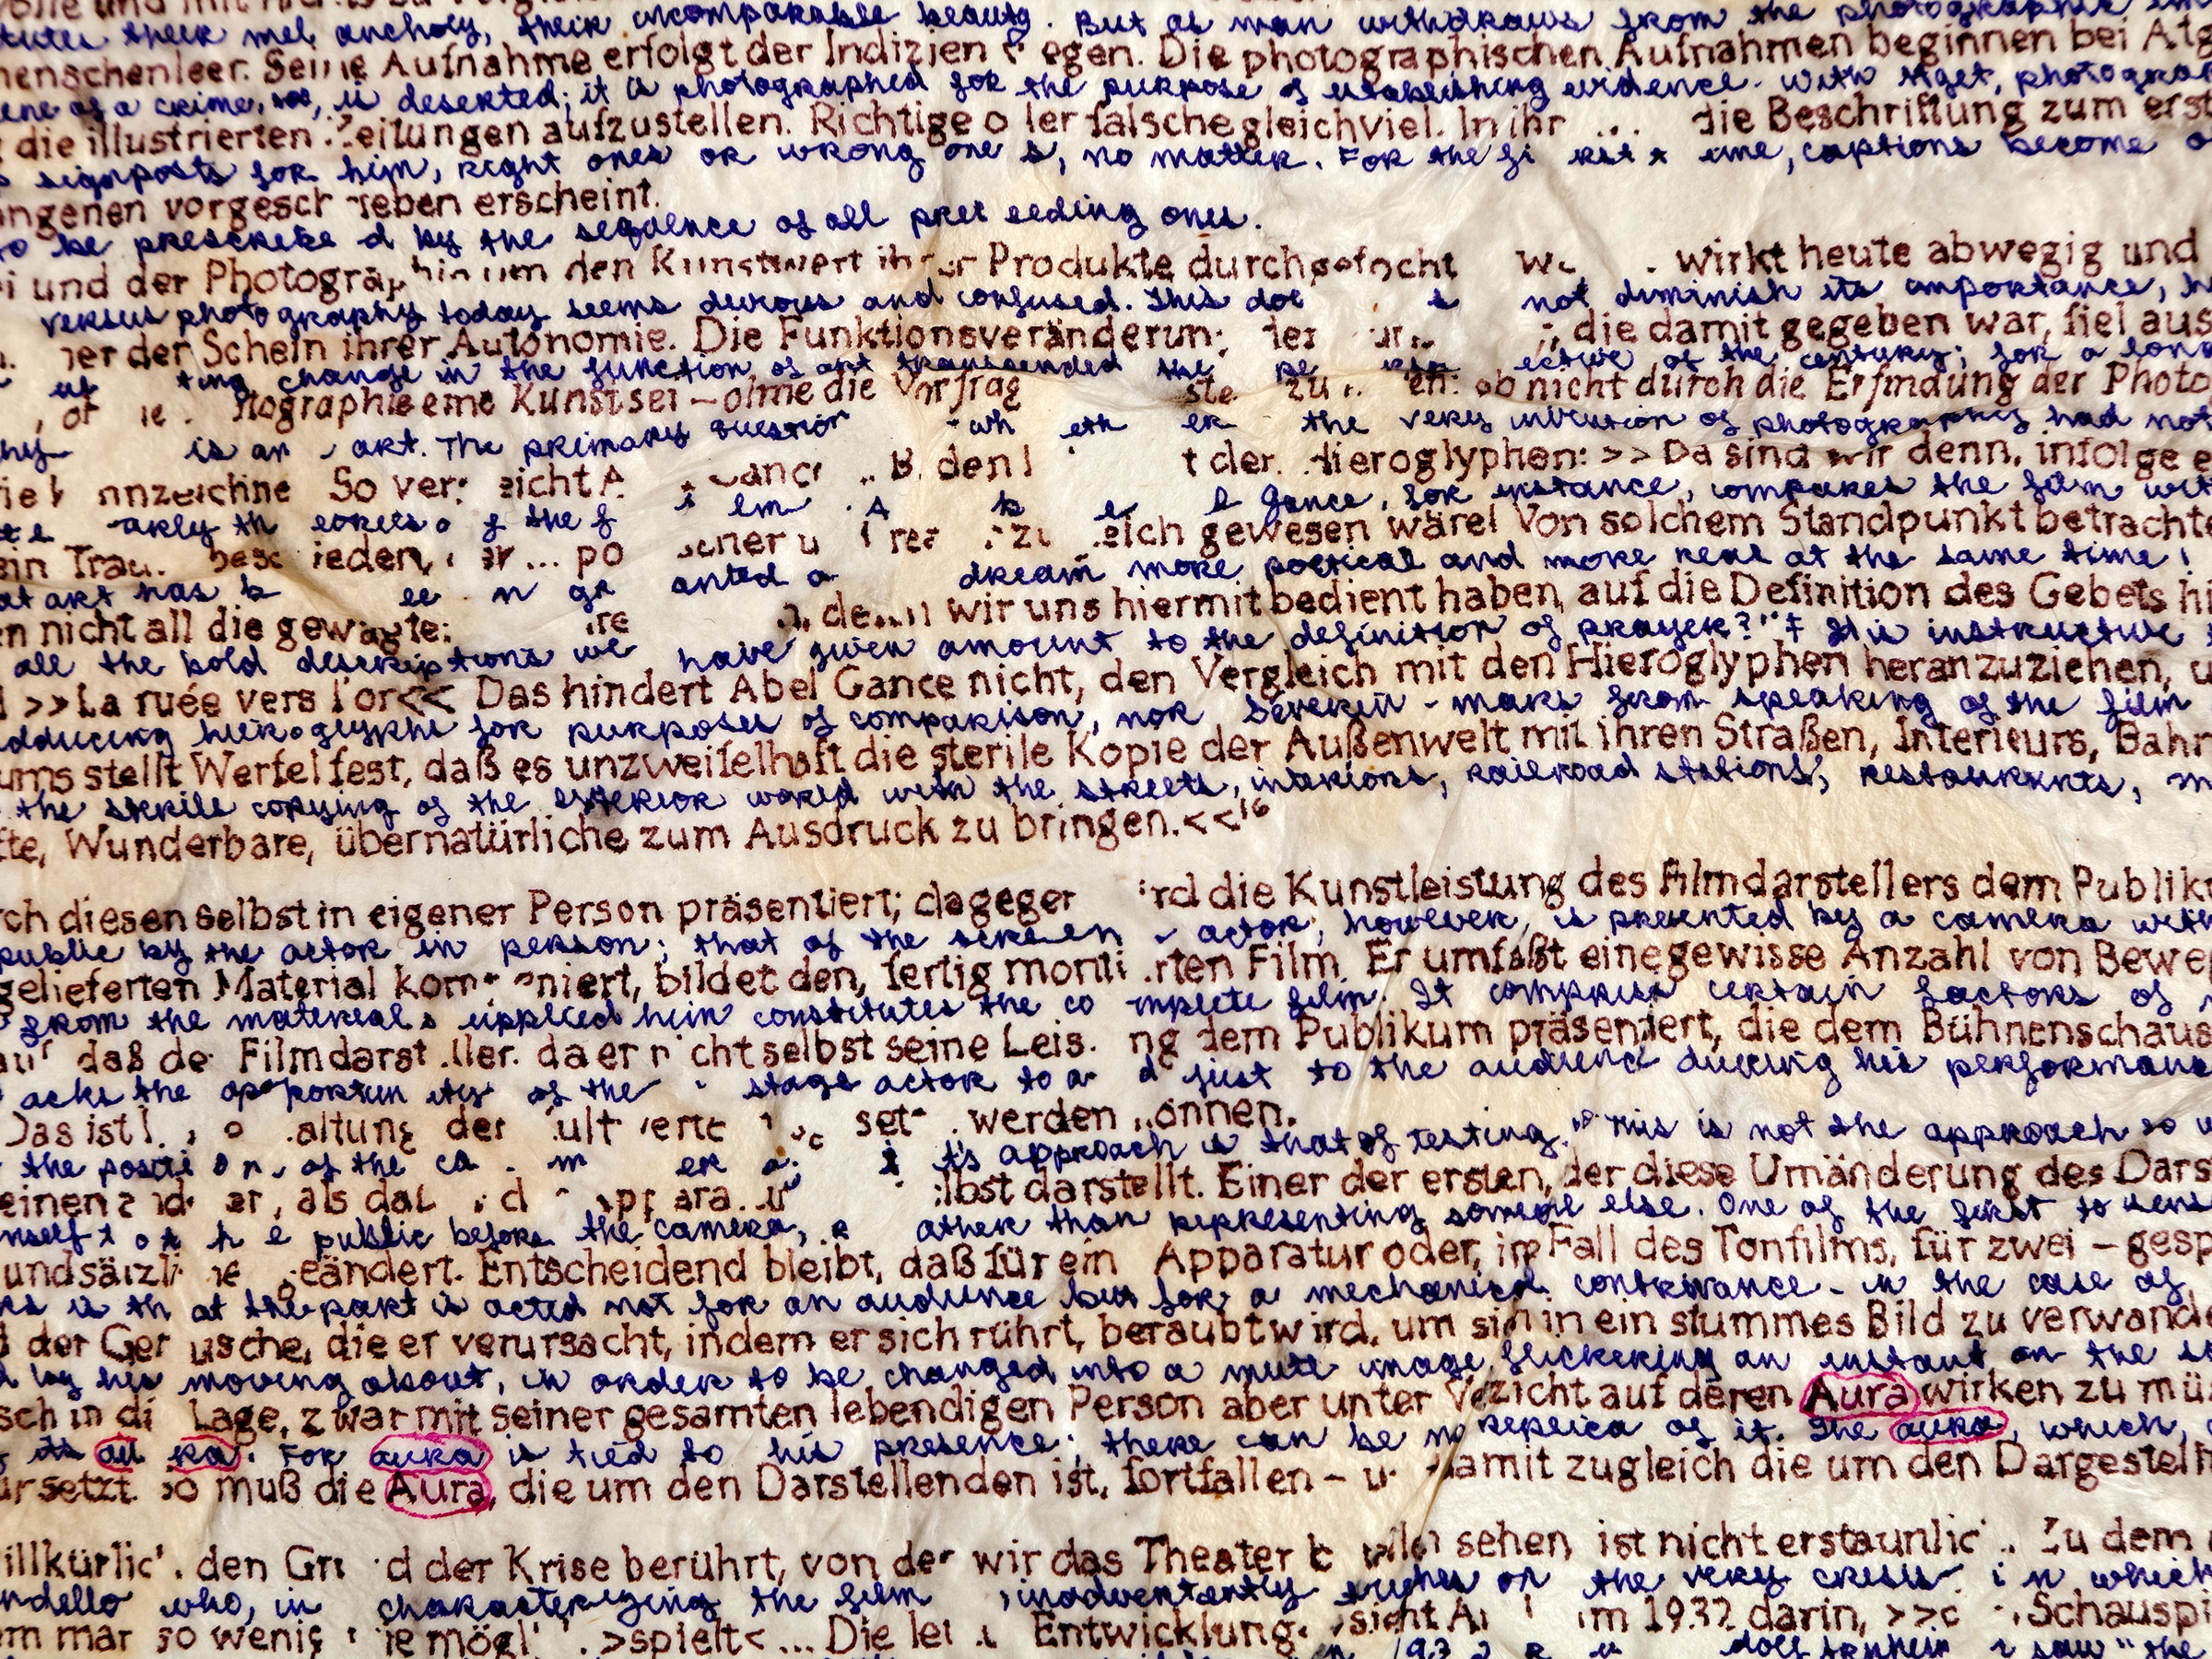 their mel ancholy, their incomparable beauty. But as man withdraws from the photographic
menschenleer. Seine Aufnahme erfolgt der Indizien egen. Die photographischen Aufnahmen beginnen bei Atg
ene of a crime, too, is deserted; it is photographed for the purpose of establishing evidence. With Atget, photogra
die illustrierten Zeitungen aufzustellen. Richtige o ler falsche gleichviel. In ihr ... die Beschriftung zum erst
signposts for him, right ones or wrong one s, no matter. For the fi rst t ime, captions become o
angenen vorgesch rieben erscheint.
to be prescribe d by the sequence of all prec eeding ones.
i und der Photograp hie um den Kunstwert ihrer Produkte durchgefocht wirkt heute abwegig und
versus photography today seems devious and confused. This doe s not diminish its importance, h
der Schein ihrer Autonomie. Die Funktionsveränderun die damit gegeben war, fiel aus
ting change in the function of art transcended the pe rsp ective of the century; for a long
otographie eine Kunst sei – ohne die Vorfrag ste zu en: ob nicht durch die Erfindung der Photo
hy is an art. The primary question - wh eth er the very invention of photography had not
nnzeichne So ver eicht A ance B. den t der Hieroglyphen: >> Da sind wir denn, infolge e
arkly th eorets o f the f i lm . A b e l Gance, for instance, compares the film wit
ein Trau besc ieden, ... po zu eich gewesen wäre! Von solchem Standpunkt betrachte
at art has b ee n gr anted a dream more poetical and more real at the same time!
n nicht all die gewagte: re wir uns hiermit bedient haben, auf die Definition des Gebets hi
all the bold descriptions we have given amount to the definition of prayer?" It is instructive
>>La ruée vers l'or<< Das hindert Abel Gance nicht, den Vergleich mit den Hieroglyphen heranzuziehen, u
dducing hieroglyphs for purposes of comparison, nor Severin - mars from speaking of the film
ums stellt Werfel fest, daß es unzweifelhaft die sterile Kopie der Außenwelt mit ihren Straßen, Interieurs, Bahn
the sterile copying of the exterior world with the streets, interiors, railroad stations, restaurants, m
fte, Wunderbare, übernatürliche zum Ausdruck zu bringen.<<16
rch diesen selbst in eigener Person präsentiert; dagegen ird die Kunstleistung des Filmdarstellers dem Publik
public by the actor in person; that of the screen actor, however, is presented by a camera with
gelieferten Material kom oniert, bildet den, fertig monti rten Film. Er umfaßt eine gewisse Anzahl von Bewe
from the materials upplied him constitutes the co mplete film. It comprises certain factors of
auf daß de Filmdarst ller. da er n cht selbst seine Leis ng dem Publikum präsentiert, die dem Bühnenschaus
acks the opportun ity of the stage actor to a d just to the audience during his performance
Das ist altung der ult verte set werden önnen.
the positi o n of the ca m er a; it's approach is that of testing. This is not the approach to w
einen and er, als daß d pp ara u lbst darstellt. Einer der ersten, der diese Umänderung des Dars
mself t o t h e public before the camera, r ather than representing someone else. One of the first to sens
undsätzli he geändert. Entscheidend bleibt, daß für ein Apparatur oder, im Fall des Tonfilms, für zwei – gesp
rs is th at the part is acted not for an audience but for a mechanical contrivance - in the case of
der Ger usche, die er verursacht, indem er sich rührt, beraubt wird, um sich in ein stummes Bild zu verwande
d by his moving about, in order to be changed into a mute image, flickering an instant on the s
sch in di Lage, zwar mit seiner gesamten lebendigen Person aber unter Verzicht auf deren Aura wirken zu mü
its au ra. For aura is tied to his presence; there can be no replica of it. The aura, which,
ursetzt. so muß die Aura, die um den Darstellenden ist, fortfallen – u damit zugleich die um den Dargestell
illkürlic den Gru d der Krise berührt, von der wir das Theater b sehen ist nicht erstaunlic . Zu dem
ndello who, in characterizing the film, inadvertently touches on the very crisis in which
em man so wenig ie mögl >spielt< ... Die le Entwicklung sieht A im 1932 darin, >> Schauspi
193 2 R u dolf Arnheim saw "the